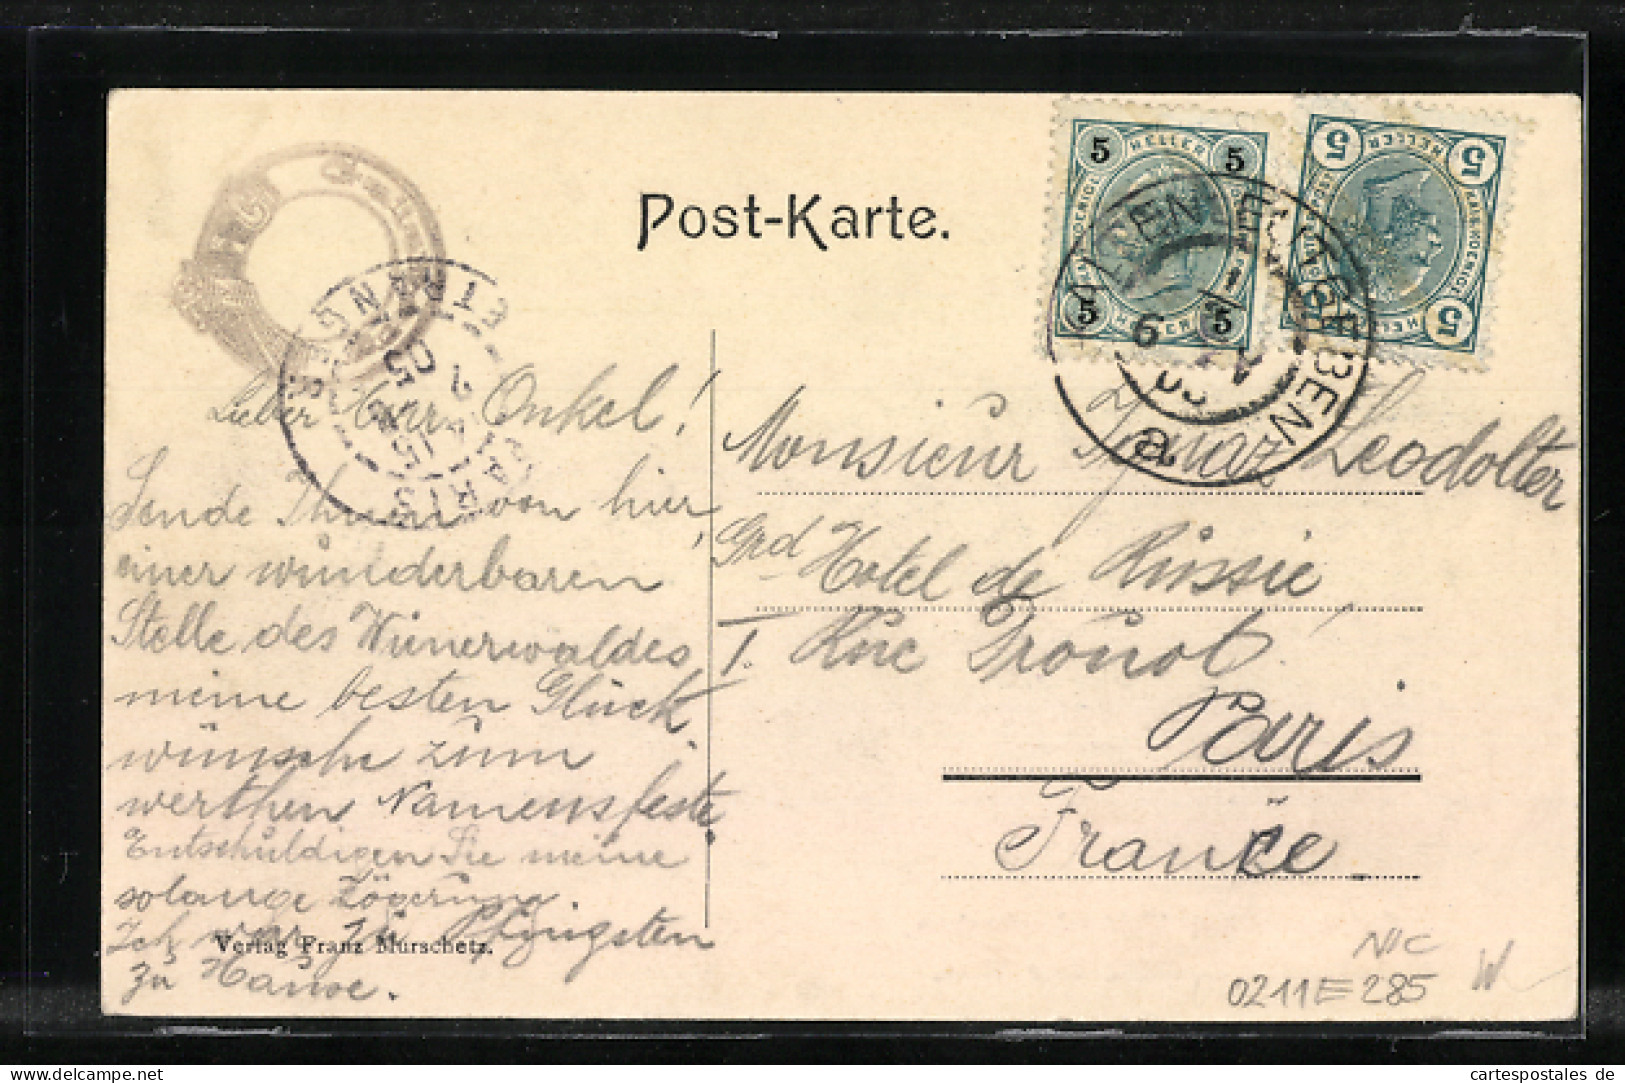 Post-Karte.
5 HELLER 5
5 5
5 HELLER 5
5 HELLER 5
6 V
05
a
ETRANGER
PARIS
15
05
Lieber Herr Onkel!
Sende Ihnen von hier,
einer wunderbaren
Stelle des Wienerwaldes
meine besten Glück-
wünsche zum
werthen Namensfeste.
Entschuldigen Sie meine
solange Zögerung.
Ich war zu Pfingsten
zu Hause.
Verlag Franz Murschetz.
Monsieur Ignaz Leodolter
Grd Hotel de Russie
I. Rue Drouot
Paris
France
NIC
0211E285
W
cartespostales de